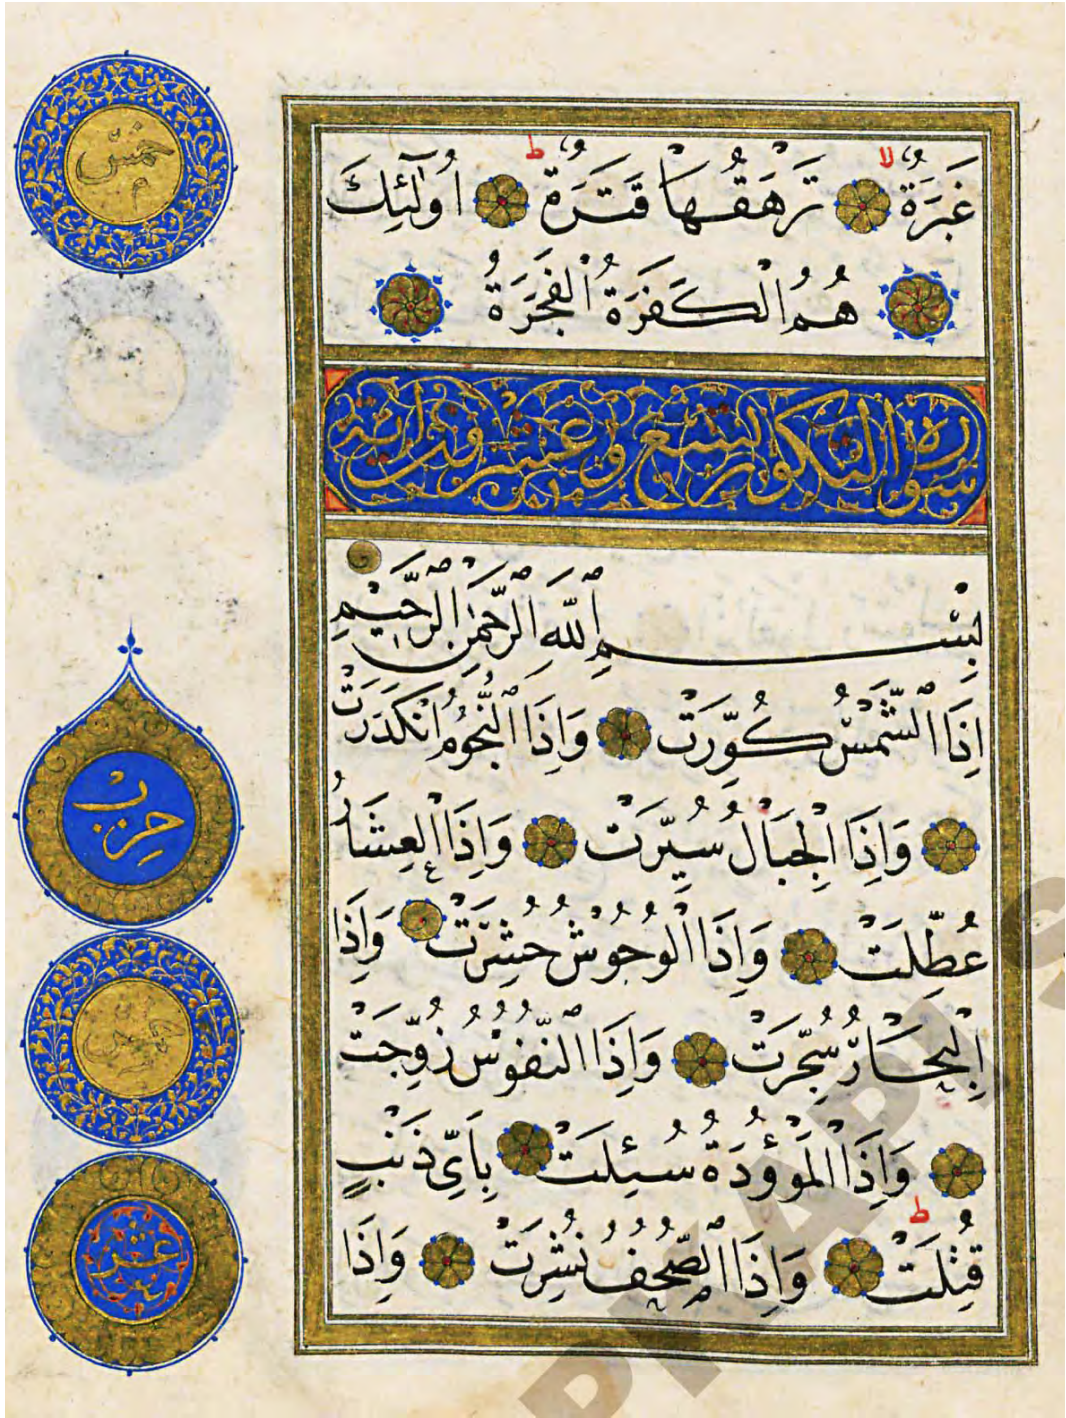 غَبَرَةٌ لا تَرْهَقُهَا قَتَرَةٌ ط اُولٰٓئِكَ
هُمُ الْكَفَرَةُ الْفَجَرَةُ
سورة التكوير تسع وعشرون آية
بِسْمِ اللّٰهِ الرَّحْمٰنِ الرَّحِيْمِ
اِذَا الشَّمْسُ كُوِّرَتْ وَاِذَا النُّجُوْمُ انْكَدَرَتْ
وَاِذَا الْجِبَالُ سُيِّرَتْ وَاِذَا الْعِشَارُ
عُطِّلَتْ وَاِذَا الْوُحُوْشُ حُشِرَتْ وَاِذَا
الْبِحَارُ سُجِّرَتْ وَاِذَا النُّفُوْسُ زُوِّجَتْ
وَاِذَا الْمَوْؤُدَةُ سُئِلَتْ بِاَيِّ ذَنْبٍ
قُتِلَتْ ط وَاِذَا الصُّحُفُ نُشِرَتْ وَاِذَا
خمس
حزب
خمس
عشر